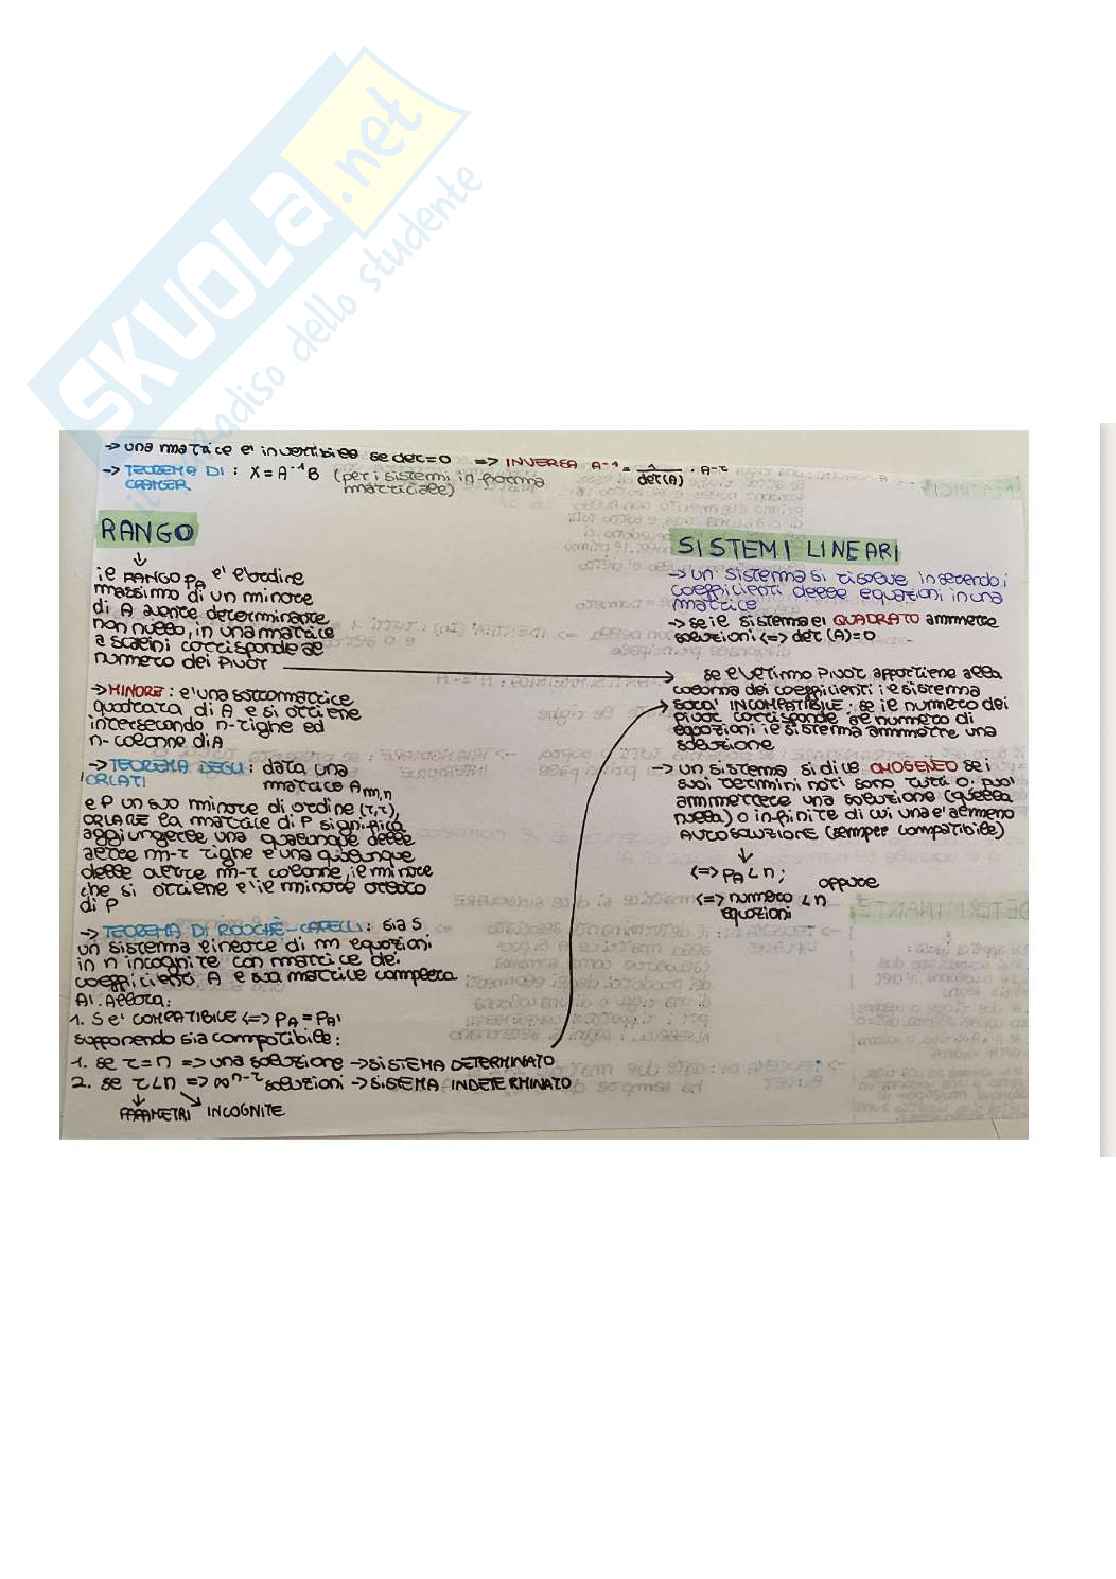 SKUOLA.net
il paradiso dello studente
→ una matrice e' invertibile se det=0 => INVERSA A⁻¹ = 1/det(A) · A⁻ᵗ
→ TEOREMA DI : X = A⁻¹B (per i sistemi in forma
CRAMER matriciale)
RANGO
↓
il RANGO ρA e' l'ordine
massimo di un minore
di A avente determinante
non nullo, in una matrice
a scalini corrisponde al
numero dei PIVOT
→ MINORE : e' una sottomatrice
quadrata di A e si ottiene
intersecando n-righe ed
n-colonne di A
→ TEOREMA DEGLI : data una
ORLATI matrice Am,n
e P un suo minore di ordine (r,r),
ORLARE la matrice di P significa
aggiungerle una qualunque delle
altre m-r righe e una qualunque
delle altre m-r colonne, il minore
che si ottiene e' il minore orlato
di P
→ TEOREMA DI ROUCHÈ-CAPELLI : sia S
un sistema lineare di m equazioni
in n incognite con matrice dei
coefficienti A e sua matrice completa
A'. Allora:
1. S e' COMPATIBILE <=> ρA = ρA'
supponendo sia compatibile:
1. se r=n => una soluzione → SISTEMA DETERMINATO
2. se r<n => ∞ⁿ⁻ʳ soluzioni → SISTEMA INDETERMINATO
PARAMETRI INCOGNITE
SISTEMI LINEARI
→ un sistema si risolve inserendo i
coefficienti delle equazioni in una
matrice
→ se il sistema e' QUADRATO ammette
soluzioni <=> det(A)=0
se l'ultimo PIVOT appartiene alla
colonna dei coefficienti il sistema
sara' INCOMPATIBILE. se il numero dei
pivot corrisponde al numero di
equazioni il sistema ammette una
soluzione
→ un sistema si dice OMOGENEO se i
suoi termini noti sono tutti 0. puo'
ammettere una soluzione (quella
nulla) o infinite di cui una e' almeno
AUTOSOLUZIONE (semper compatibile)
↓
<=> ρA < n ; oppure
<=> numero < n
equazioni